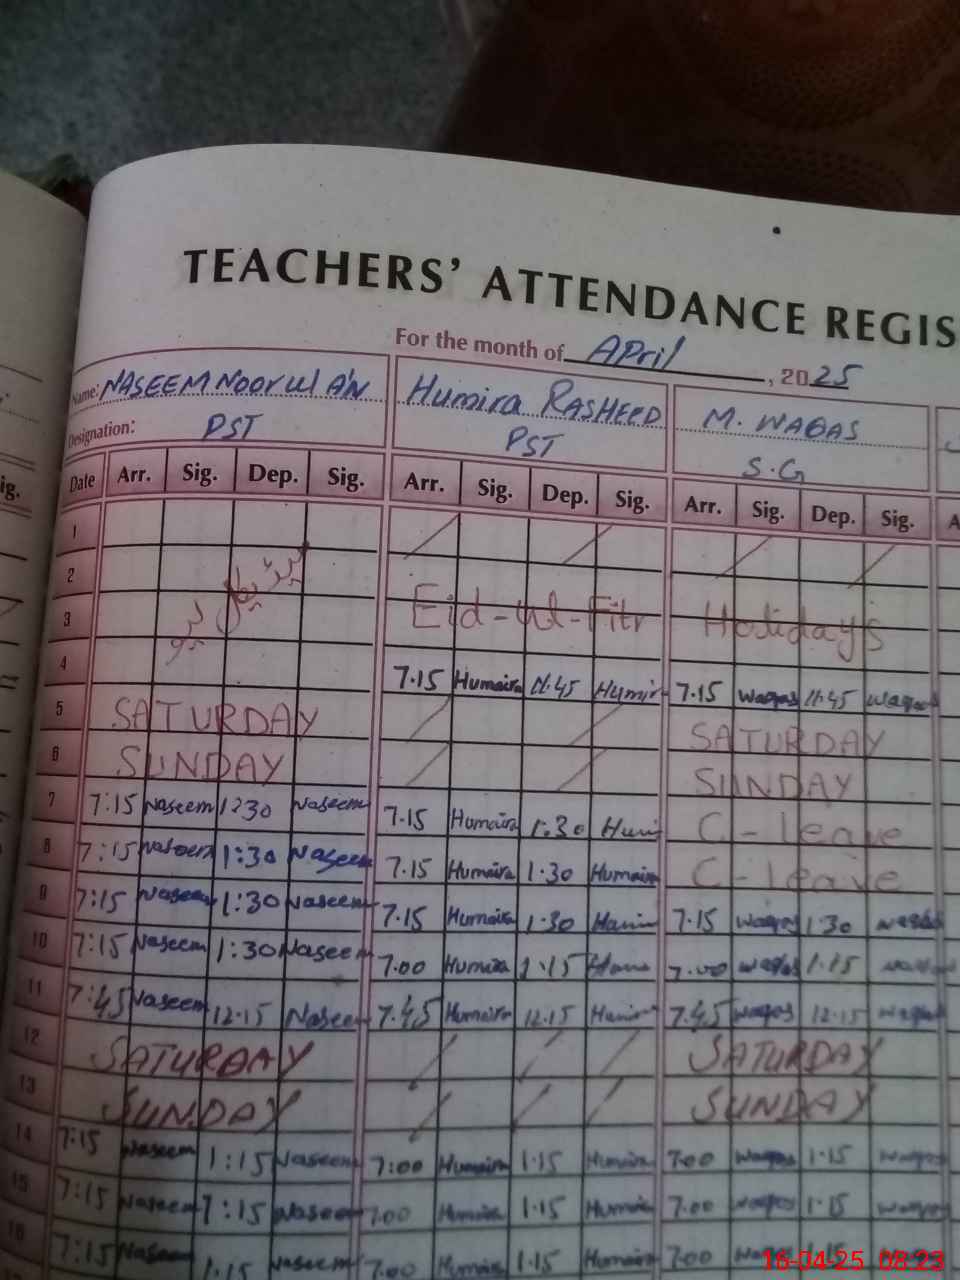 TEACHERS' ATTENDANCE REGIS
For the month of April, 2025
Name: NASEEM NOOR UL A'N Humira RASHEED M. WAQAS
Designation: PST PST S.G
Date Arr. Sig. Dep. Sig. Arr. Sig. Dep. Sig. Arr. Sig. Dep. Sig. A
1
2
3 Eid-ul-Fitr Holidays
4 7.15 Humaira 11.45 Humir 7.15 waqas 11.45 waqas
5 SATURDAY SATURDAY
6 SUNDAY SUNDAY
7 7:15 Naseem 1230 Naseem 7.15 Humaira 1.30 C-leave
8 7:15 Naseem 1:30 Naseem 7.15 Humaira 1.30 Humaira C-leave
9 7:15 Naseem 1:30 Naseem 7.15 Humaira 1.30 7.15 waqas 1.30 waqas
10 7:15 Naseem 1:30 Naseem 7.00 Humaira 1.15 7.00 waqas 1.15
11 7:45 Naseem 12.15 Naseem 7.45 Humaira 12.15 7.45 waqas 12.15 waqas
12 SATURDAY SATURDAY
13 SUNDAY SUNDAY
14 7:15 Naseem 1:15 Naseem 7:00 Humaira 1.15 Humaira 7.00 waqas 1.15 waqas
15 7:15 Naseem 1:15 Naseem 7.00 Humaira 1.15 Humaira 7.00 waqas 1.15 waqas
16 7:15 Naseem 1.15 Naseem 7.00 Humaira 1.15 Humaira 7.00 waqas
16-04-25 08:23